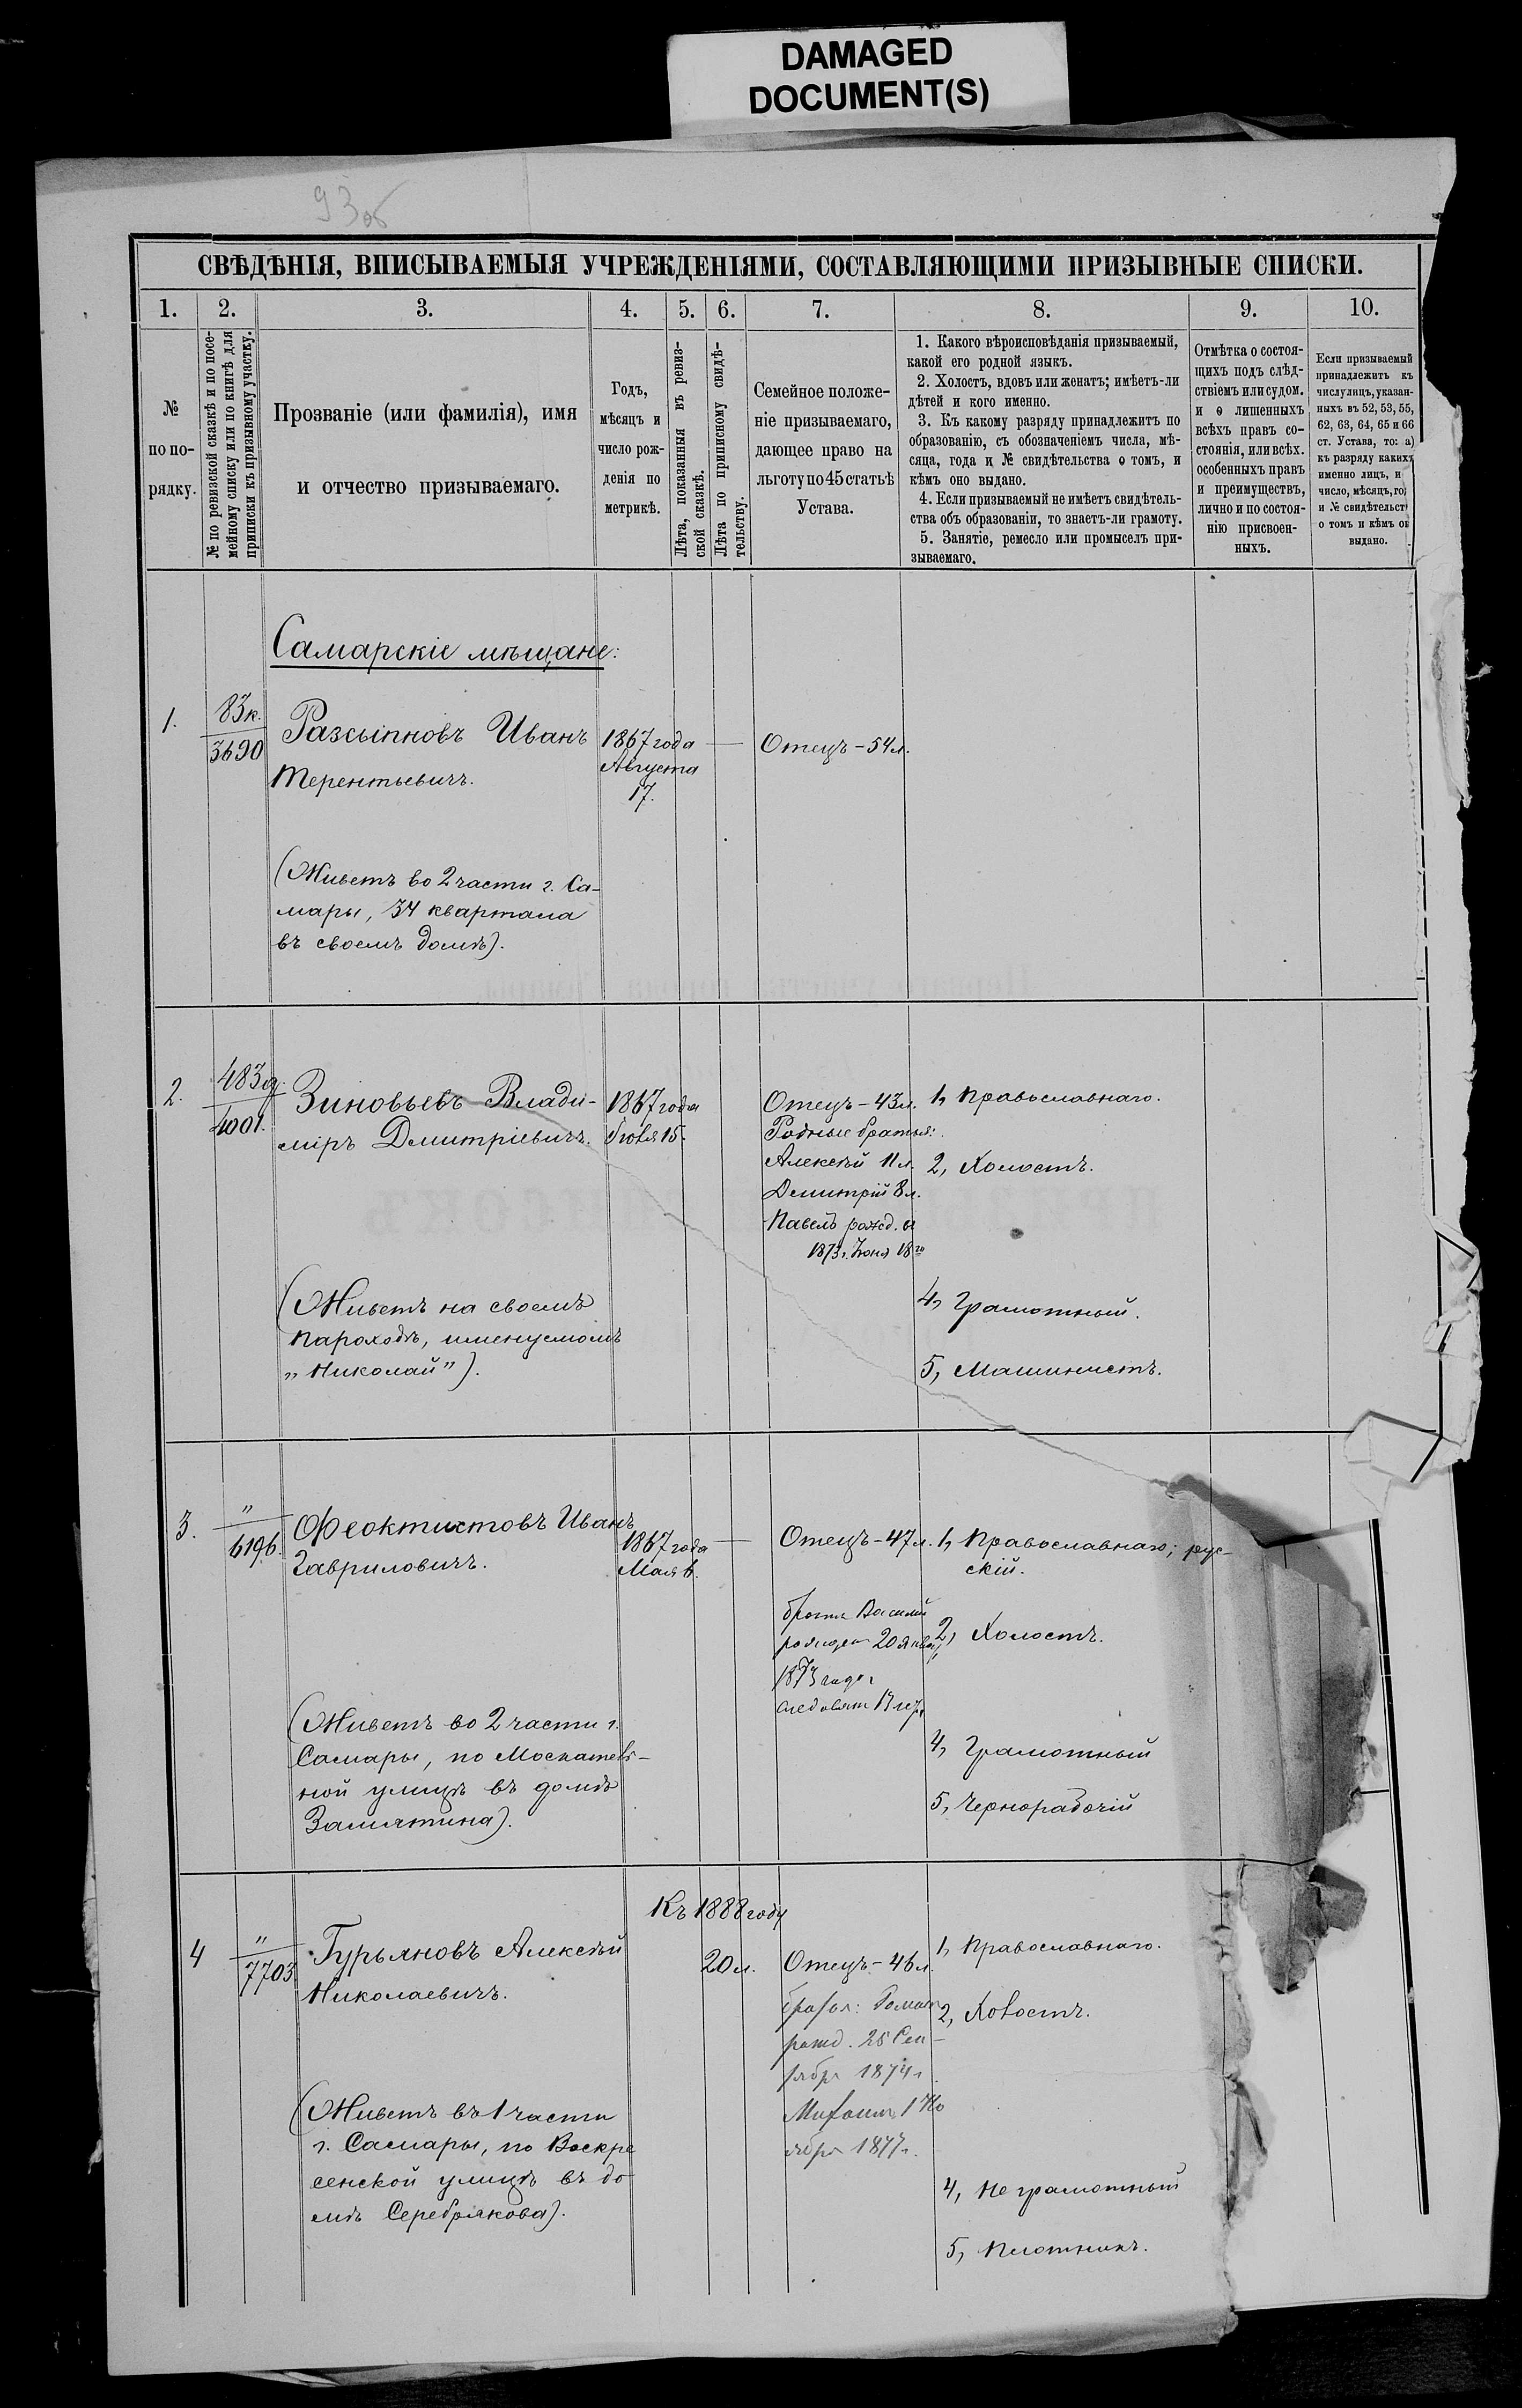 DAMAGED
DOCUMENT(S)
93об
СВѢДѢНІЯ, ВПИСЫВАЕМЫЯ УЧРЕЖДЕНІЯМИ, СОСТАВЛЯЮЩИМИ ПРИЗЫВНЫЕ СПИСКИ.
1.
2.
3.
4.
5.
6.
7.
8.
9.
10.
№
по по-
рядку.
№ по ревизской сказкѣ и по посе-
мейному списку или по книгѣ для
приписки къ призывному участку.
Прозваніе (или фамилія), имя
и отчество призываемаго.
Годъ,
мѣсяцъ и
число рож-
денія по
метрикѣ.
Лѣта, показанныя въ ревиз-
ской сказкѣ.
Лѣта по приписному свидѣ-
тельству.
Семейное положе-
ніе призываемаго,
дающее право на
льготу по 45 статьѣ
Устава.
1. Какого вѣроисповѣданія призываемый,
какой его родной языкъ.
2. Холостъ, вдовъ или женатъ; имѣетъ-ли
дѣтей и кого именно.
3. Къ какому разряду принадлежитъ по
образованію, съ обозначеніемъ числа, мѣ-
сяца, года и № свидѣтельства о томъ, и
кѣмъ оно выдано.
4. Если призываемый не имѣетъ свидѣтель-
ства объ образованіи, то знаетъ-ли грамоту.
5. Занятіе, ремесло или промыселъ при-
зываемаго.
Отмѣтка о состоя-
щихъ подъ слѣд-
ствіемъ или судом.
и о лишенныхъ
всѣхъ правъ со-
стоянія, или всѣх.
особенныхъ правъ
и преимуществъ,
лично и по состоя-
нію присвоен-
ныхъ.
Если призываемый
принадлежитъ къ
числу лицъ, указан-
ныхъ въ 52, 53, 55,
62, 63, 64, 65 и 66
ст. Устава, то: а)
къ разряду какихъ
именно лицъ, и
число, мѣсяцъ, го
и № свидѣтельст
о томъ и кѣмъ о
выдано.
Самарскіе мѣщане:
1.
83к.
3690
Разсыпновъ Иванъ
Терентьевичъ.
1867 года
Августа
17.
—
Отецъ – 54 л.
(Живетъ во 2 части г. Са-
мары, 34 квартала
въ своемъ домѣ).
2.
483д.
4001.
Зиновьевъ Влади-
міръ Дмитріевичъ.
1867 года
Іюля 15.
Отецъ – 43 л.
Родные братья:
Алексѣй 11 л.
Димитрій 8 л.
Павелъ рожд.
1873 г. Іюня 18го
1, Православнаго.
2, Холостъ.
4, Грамотный.
5, Машинистъ.
(Живетъ на своемъ
пароходѣ, именуемомъ
„Николай").
3.
"
6196.
Феоктистовъ Иванъ
Гавриловичъ.
1867 года
Мая 6.
—
Отецъ – 47 л.
братъ Василій
рожден 20 янва
1873 года
1, Православнаго; рус-
скій.
2, Холостъ.
4, Грамотный
5, Чернорабочій
(Живетъ во 2 части г.
Самары, по Москатель-
ной улицѣ въ домѣ
Замятина).
4
"
7703
Гурьяновъ Алексѣй
Николаевичъ.
Къ 1888 году
20 л.
Отецъ – 46 л.
братья: Роман
рожд. 25 Сен-
тября 1874 г.
1 Но
ября 1877 г.
1, Православнаго.
2, Холостъ.
4, Не грамотный
5, Плотникъ.
(Живетъ въ 1 части
г. Самары, по Воскре
сенской улицѣ въ до
мѣ Серебрякова).